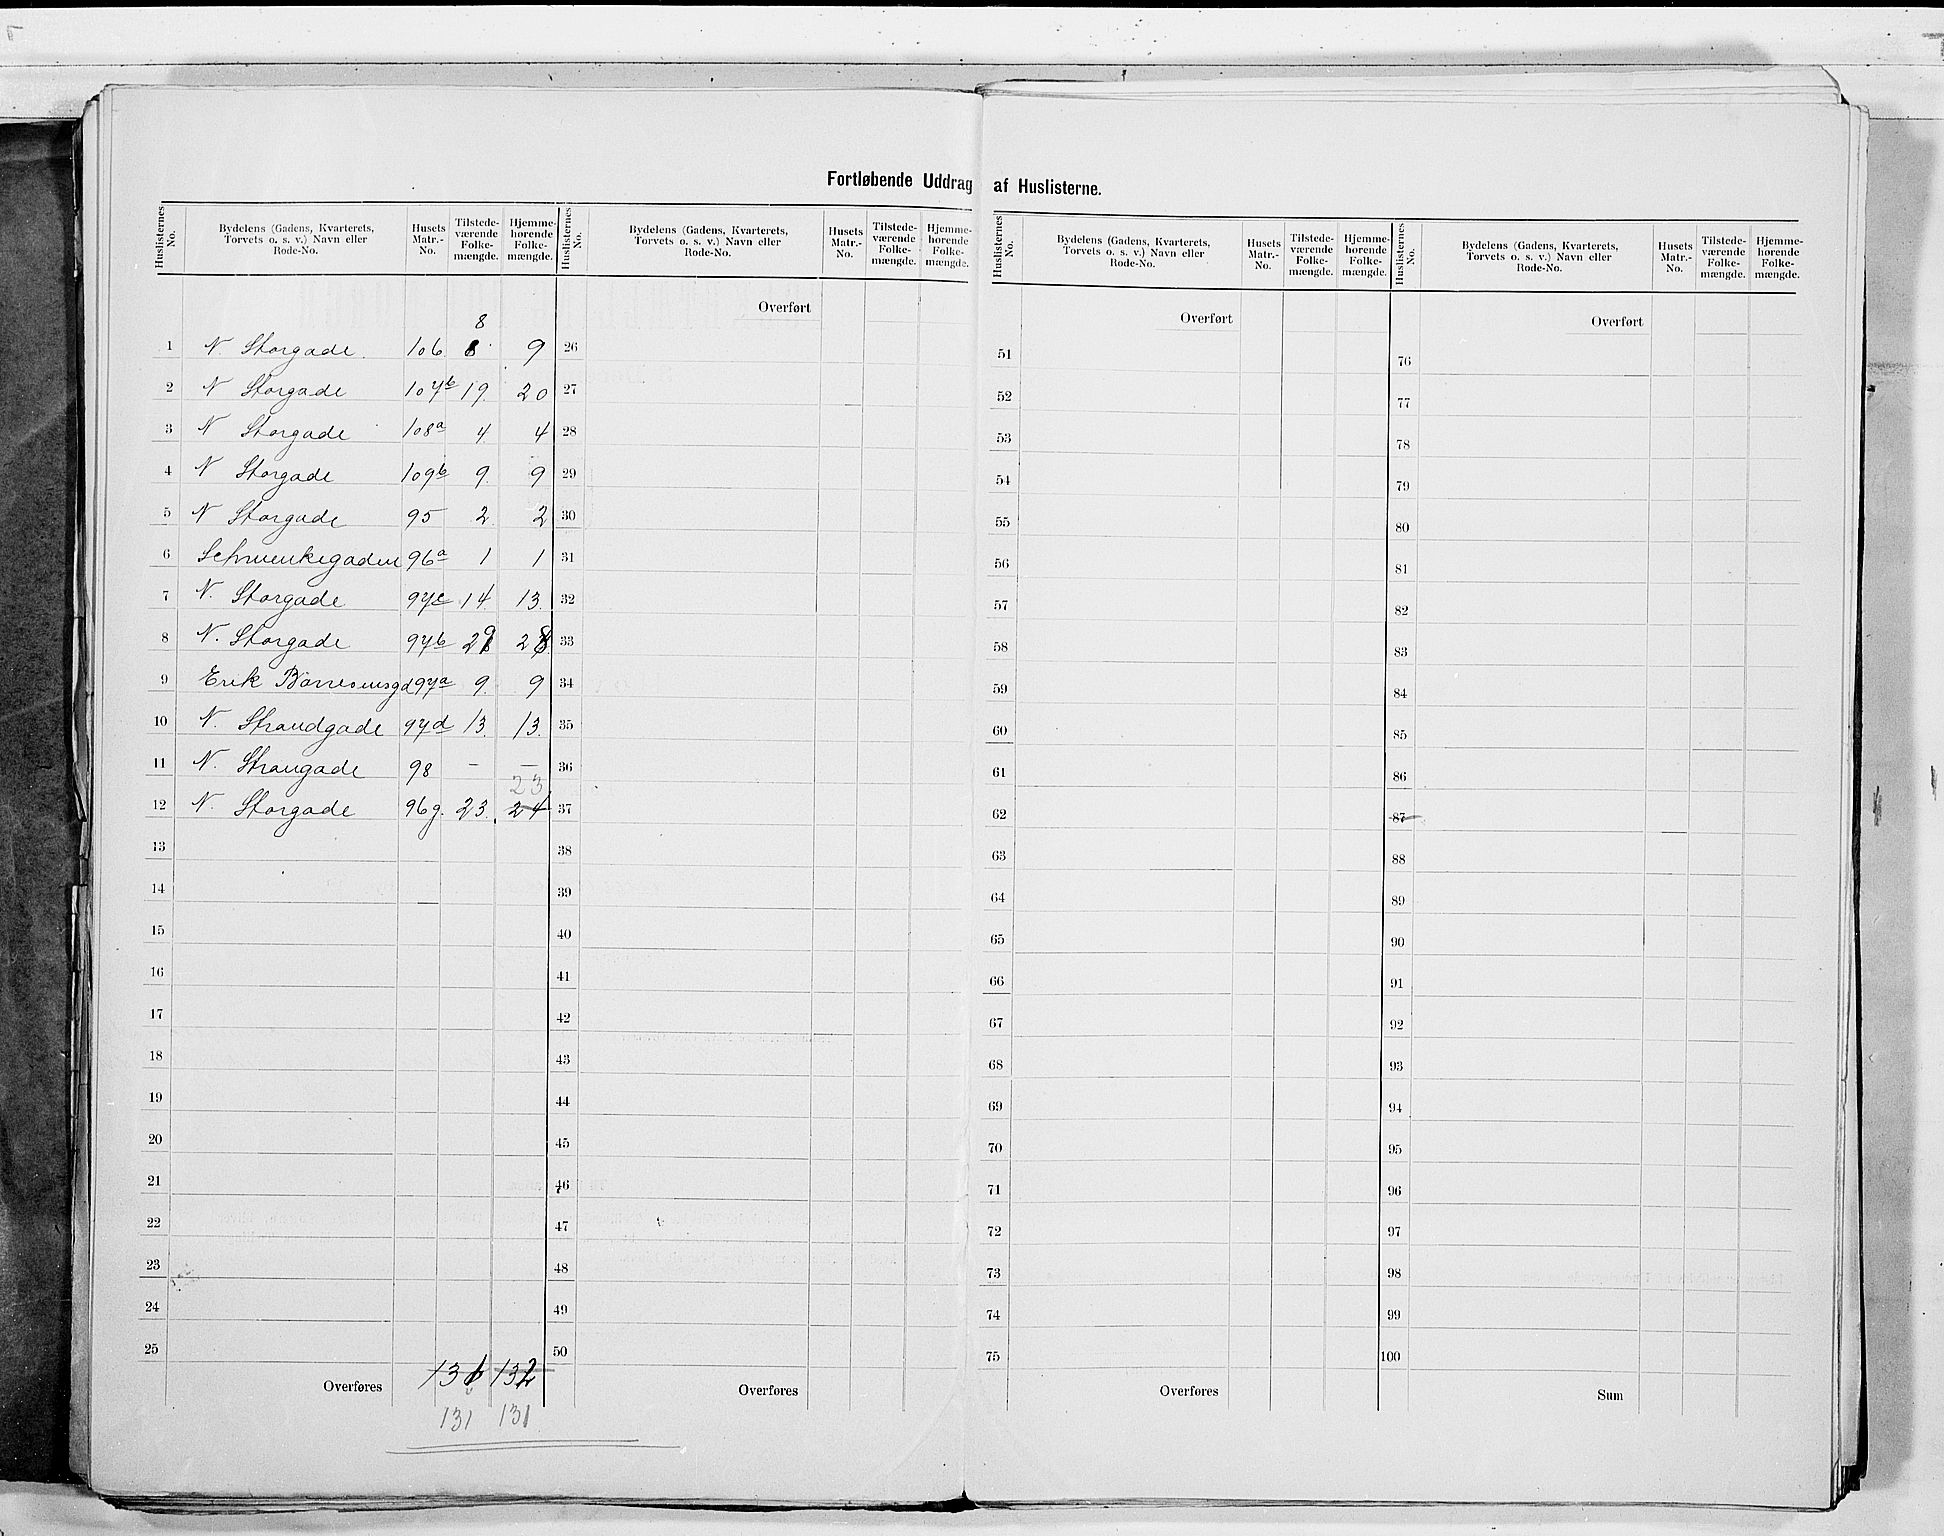 Fortløbende Uddrag af Huslisterne.
Huslisternes No. | Bydelens (Gadens, Kvarterets, Torvets o. s. v.) Navn eller Rode-No. | Husets Matr.-No. | Tilstede-værende Folke-mængde. | Hjemme-hørende Folke-mængde. | Huslisternes No. | Bydelens (Gadens, Kvarterets, Torvets o. s. v.) Navn eller Rode-No. | Husets Matr.-No. | Tilstede-værende Folke-mængde. | Hjemme-hørende Folke-mængde. | Huslisternes No. | Bydelens (Gadens, Kvarterets, Torvets o. s. v.) Navn eller Rode-No. | Husets Matr.-No. | Tilstede-værende Folke-mængde. | Hjemme-hørende Folke-mængde. | Huslisternes No. | Bydelens (Gadens, Kvarterets, Torvets o. s. v.) Navn eller Rode-No. | Husets Matr.-No. | Tilstede-værende Folke-mængde. | Hjemme-hørende Folke-mængde.
Overført Overført Overført
8
1 N. Storgade. 106. 8 9 26 51 76
2 N Storgade 107b 19. 20 27 52 77
3 N Storgade 108a 4 4 28 53 78
4 N Storgade 109b 9. 9 29 54 79
5 N Storgade 95 2. 2 30 55 80
6 96a 1 1 31 56 81
7 N. Storgade 97c 14. 13. 32 57 82
8 N. Storgade 97b 29 28 33 58 83
9 Erik Börresensgd 97a 9. 9 34 59 84
10 N. Strandgade 97d 13. 13. 35 60 85
11 N. Strangade 98 — — 36 61 86
23
12 N. Storgade 96g. 23. 24 37 62 87
13 38 63 88
14 39 64 89
15 40 65 90
16 41 66 91
17 42 67 92
18 43 68 93
19 44 69 94
20 45 70 95
21 46 71 96
22 47 72 97
23 48 73 98
24 49 74 99
25 50 75 100
Overføres 131 132 Overføres Overføres Sum
131 131